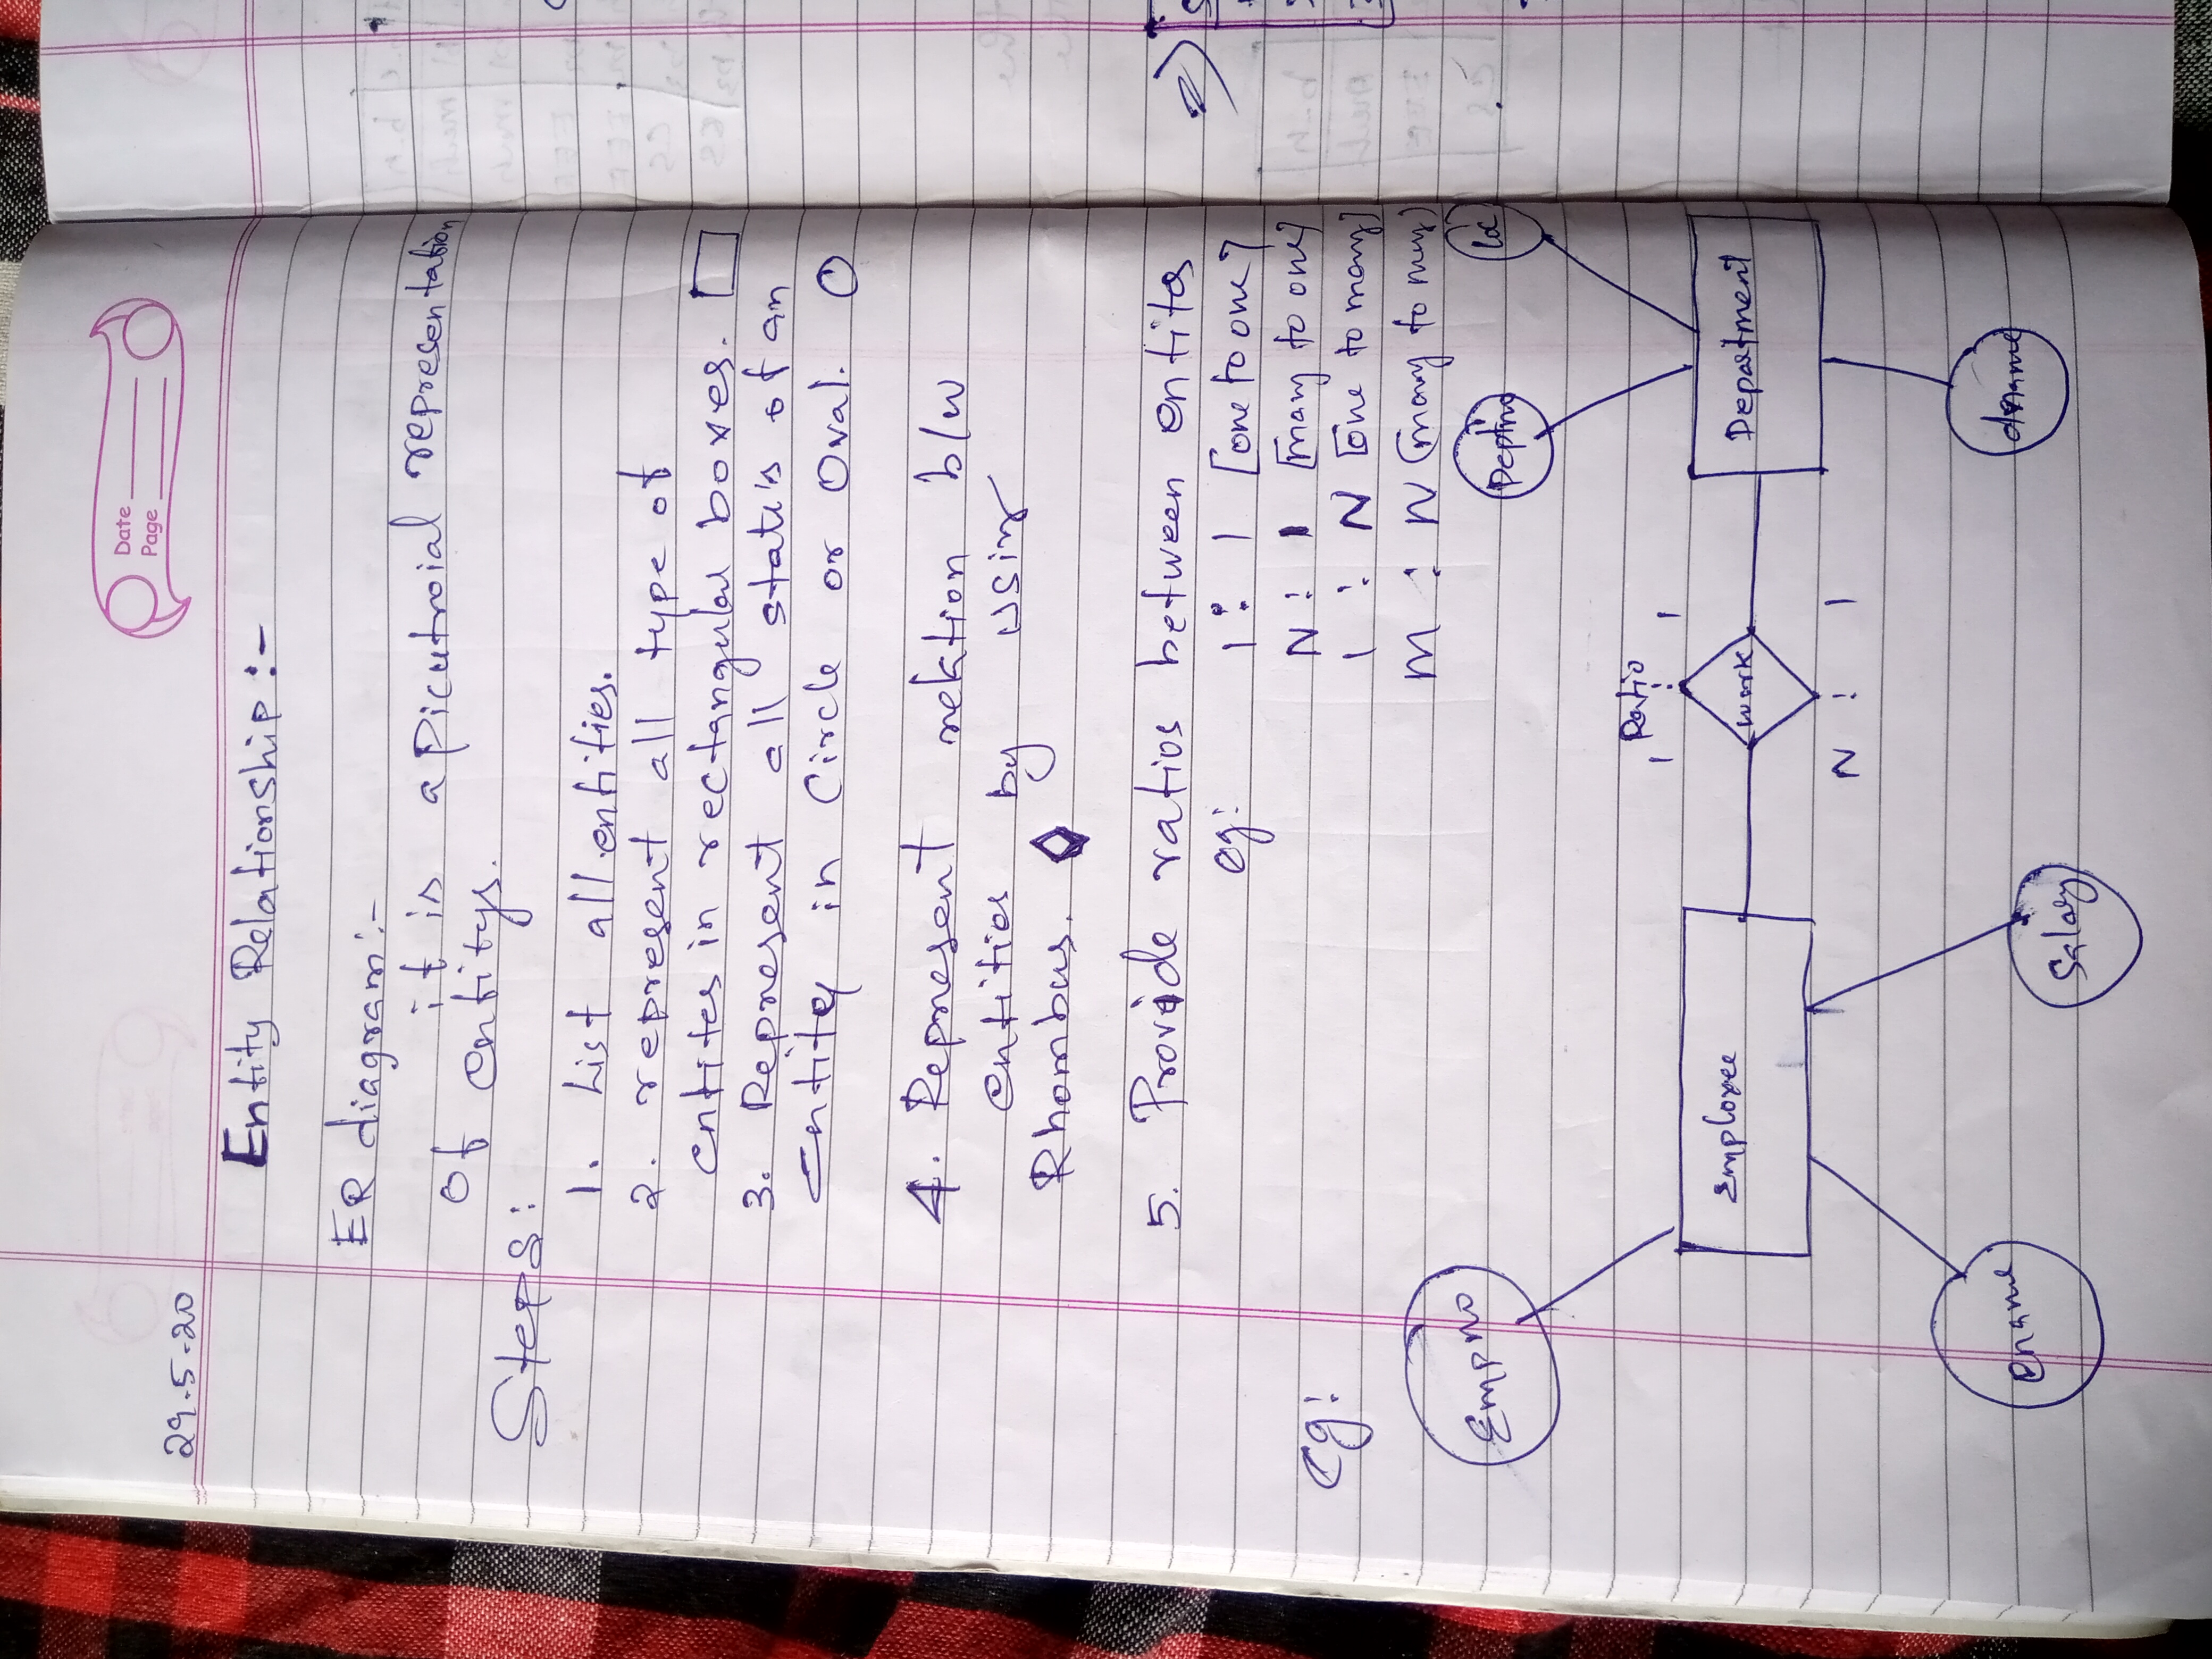 29.5-20
Date
Page
Entity Relationship:-
ER diagram:-
it is a Picutroial representation
Of entitys.
Steps:
1. List all entities.
2. represent all type of
entites in rectangular boxes.
3. Represent all state's of an
entity in Circle or Oval.
4. Represent relation b/w
entities by using
Rhombus.
5. Provide ratios between entites
eg: 1 : 1 [one to one]
N : 1 [many to one]
1 : N [one to many]
M : N (many to many)
eg:
Empno
Deptno
loc
Ratio
1 : 1
Employee
work
Department
N : 1
ename
Salary
dname